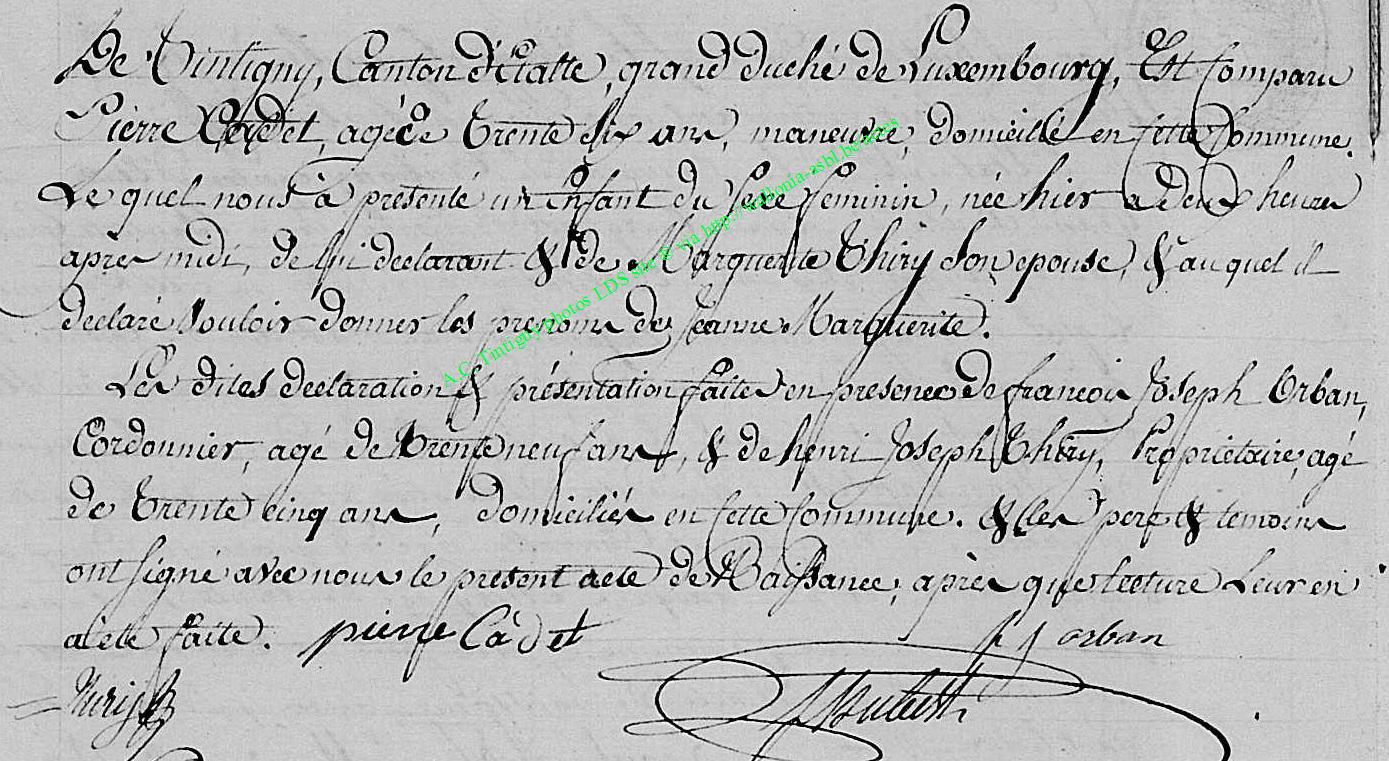 De Tintigny, Canton d'Etalle, grand duché de Luxembourg, Est Comparu
Pierre Cadet, agé de trente six ans, maneuvre, domicillé en cette Commune.
Le quel nous à présenté un Enfant du sexe feminin, née hier a deux heures
après midi, de lui declarant & de Marguerite Thiry son epouse, & auquel il
declaré vouloir donner les prenoms de Jeanne Marguerite.
Les dites declaration & présentation faites en presence de françois Joseph Orban,
Cordonnier, agé de trente neuf ans, & de henri Joseph Thiry, Propriétaire, agé
de trente cinq ans, domiciliés en cette Commune. & les pere & temoins
ont signé avec nous le présent acte de Naissance, après que lecture Leur en
a été faite. pierre Cadet
f j orban
A.C. Tintigny photos LDS site & via http://wallonia-asbl.be/sites